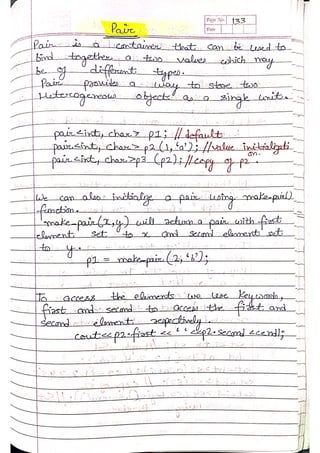 Page No. 133
Date
Pair
Pair is a container that can be used to
bind together a two values which may
be of different types.
Pair provides a way to store two
Heterogeneous objects as a single unit.
pair<int, char> p1; // default
pair<int, char> p2 (1, 'a'); // value initializati
on.
pair<int, char>p3 (p2); // copy of p2.
We can also initialize a pair using make-pair()
function.
make-pair(x,y) will return a pair with first
element set to x and second element set
to y.
p1 = make-pair (2, 'b');
To access the elements we use keywords,
first and second to access the first and
second element respectively.
cout<<p2.first << ' ' <<p2.second <<endl;